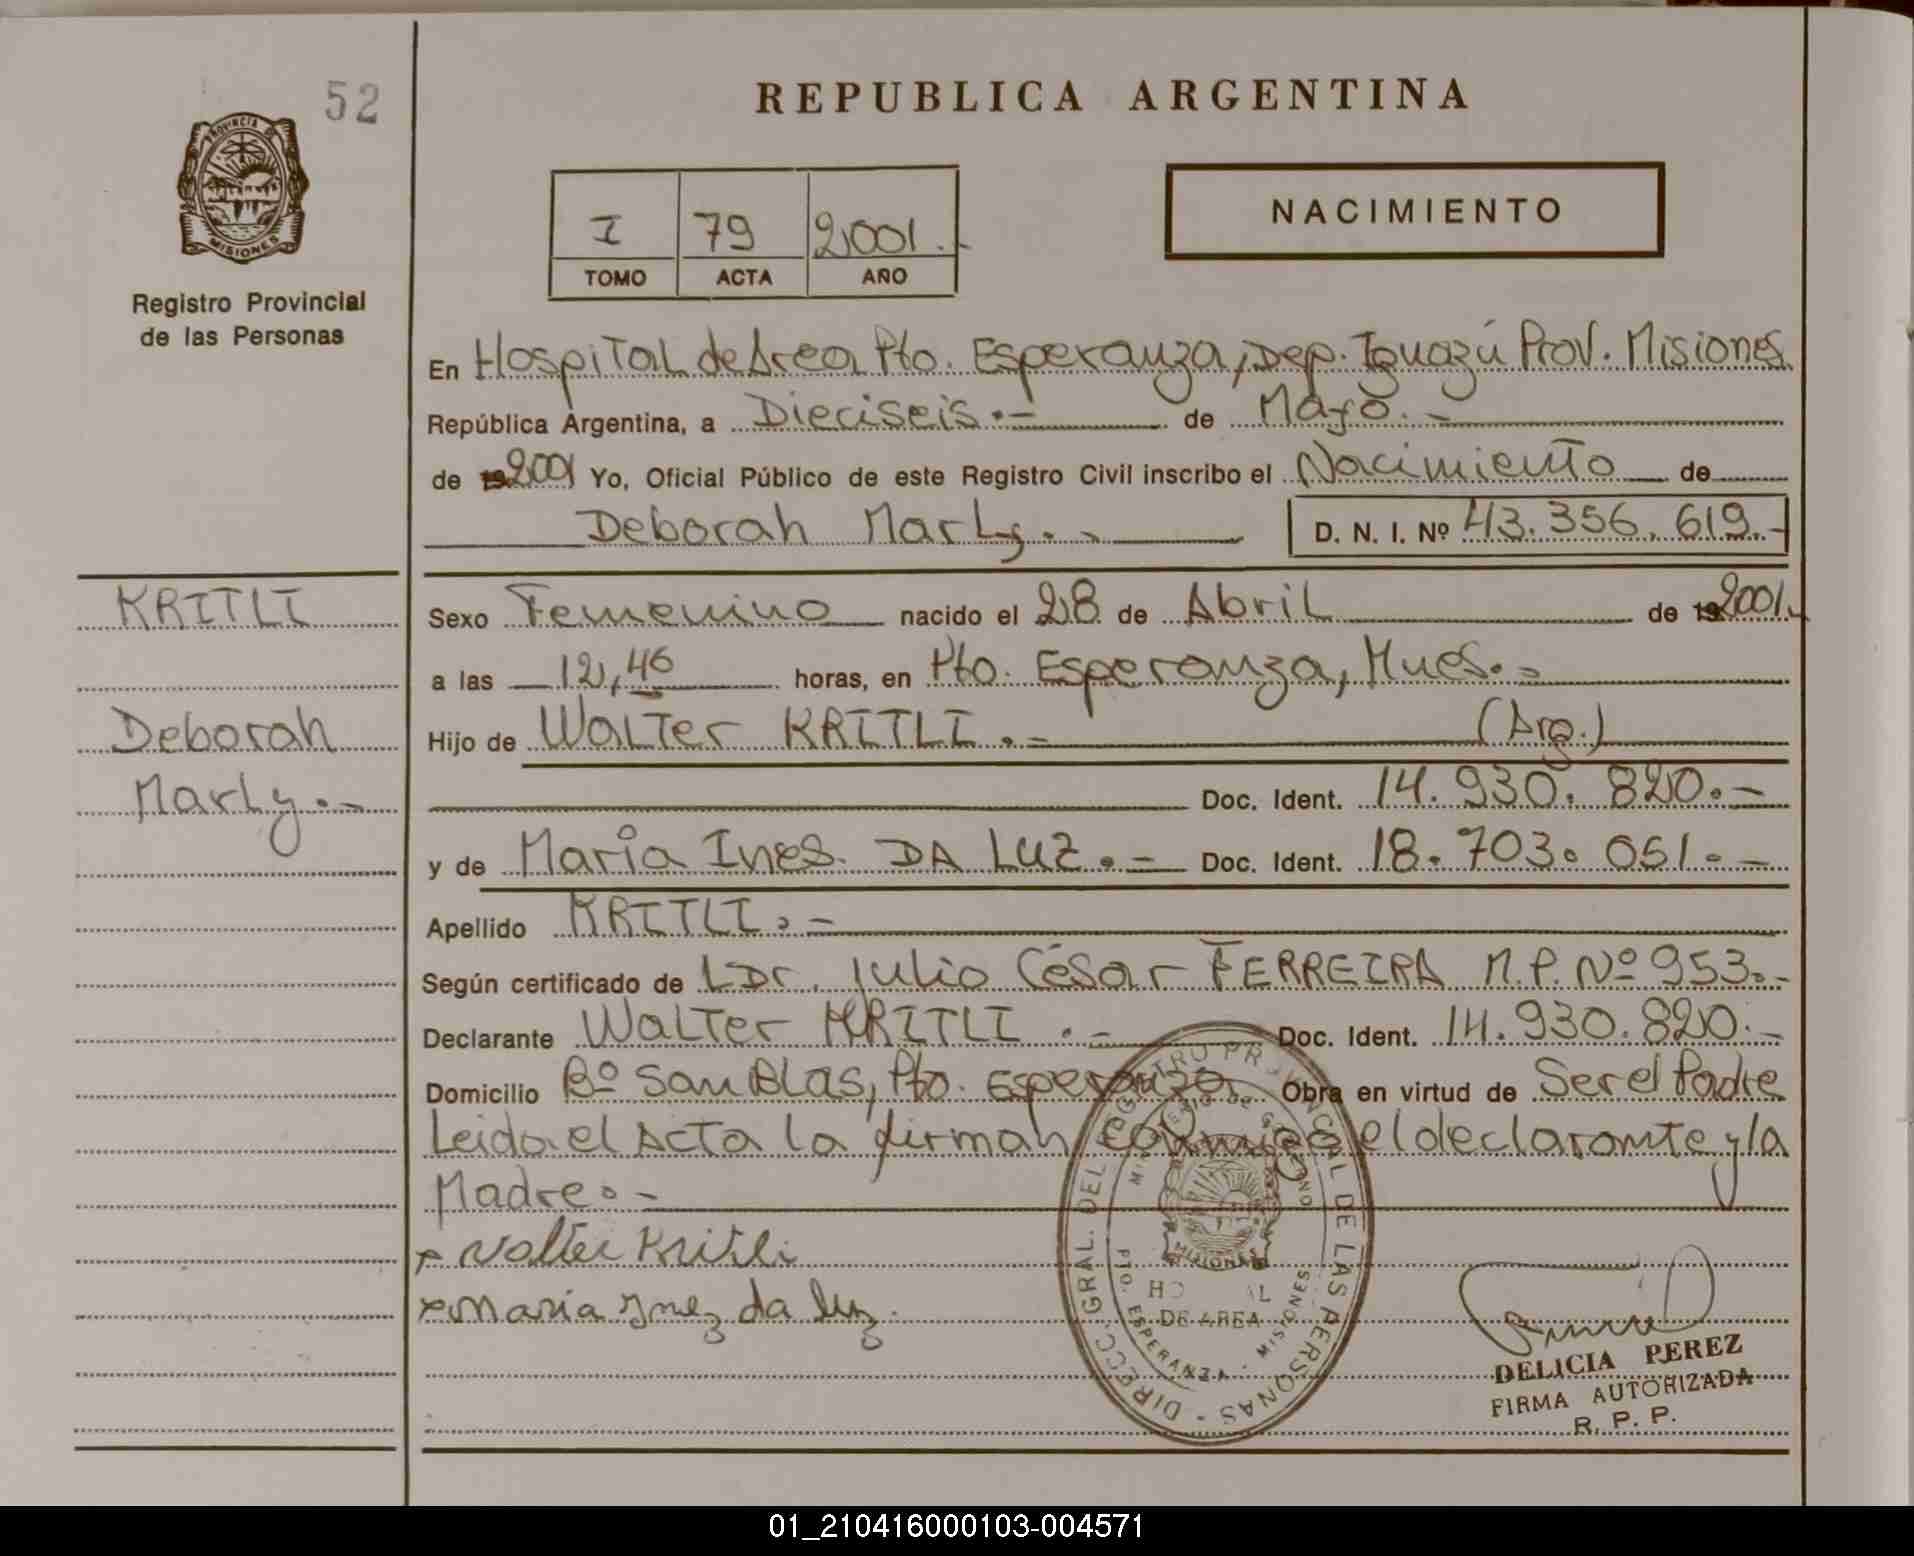 52
PROVINCIA DE
MISIONES
Registro Provincial
de las Personas
REPUBLICA ARGENTINA
I 79 2001.-
TOMO ACTA AÑO
NACIMIENTO
En Hospital de Area Pto. Esperanza, Dep. Iguazú Prov. Misiones
República Argentina, a Dieciseis.- de Mayo.-
de 19 2001 Yo, Oficial Público de este Registro Civil inscribo el Nacimiento de
Deborah Marly.- D. N. I. Nº 43.356.619.-
KRITLI
Deborah
Marly.-
Sexo Femenino nacido el 28 de Abril de 19 2001.-
a las 12,46 horas, en Pto. Esperanza, Mnes.-
Hijo de Walter KRITLI.- (Arg.)
Doc. Ident. 14.930.820.-
y de María Ines. DA LUZ.- Doc. Ident. 18.703.051.-
Apellido KRITLI.-
Según certificado de LDr. Julio César FERREIRA M.P. Nº 953.-
Declarante Walter KRITLI.- Doc. Ident. 14.930.820.-
Domicilio Bº San Blas, Pto. Esperanza Obra en virtud de Ser el Padre
Leida el Acta la firman conmigo el declarante y la
Madre.-
x Walter Kritli
x Maria Ynez da luz.
DIRECC. GRAL. DEL REGISTRO PROVINCIAL DE LAS PERSONAS -
MINISTERIO DE GOBIERNO
MISIONES
HOSPITAL
DE AREA
PTO. ESPERANZA - MISIONES
DELICIA PEREZ
FIRMA AUTORIZADA
R. P. P.
01_210416000103-004571